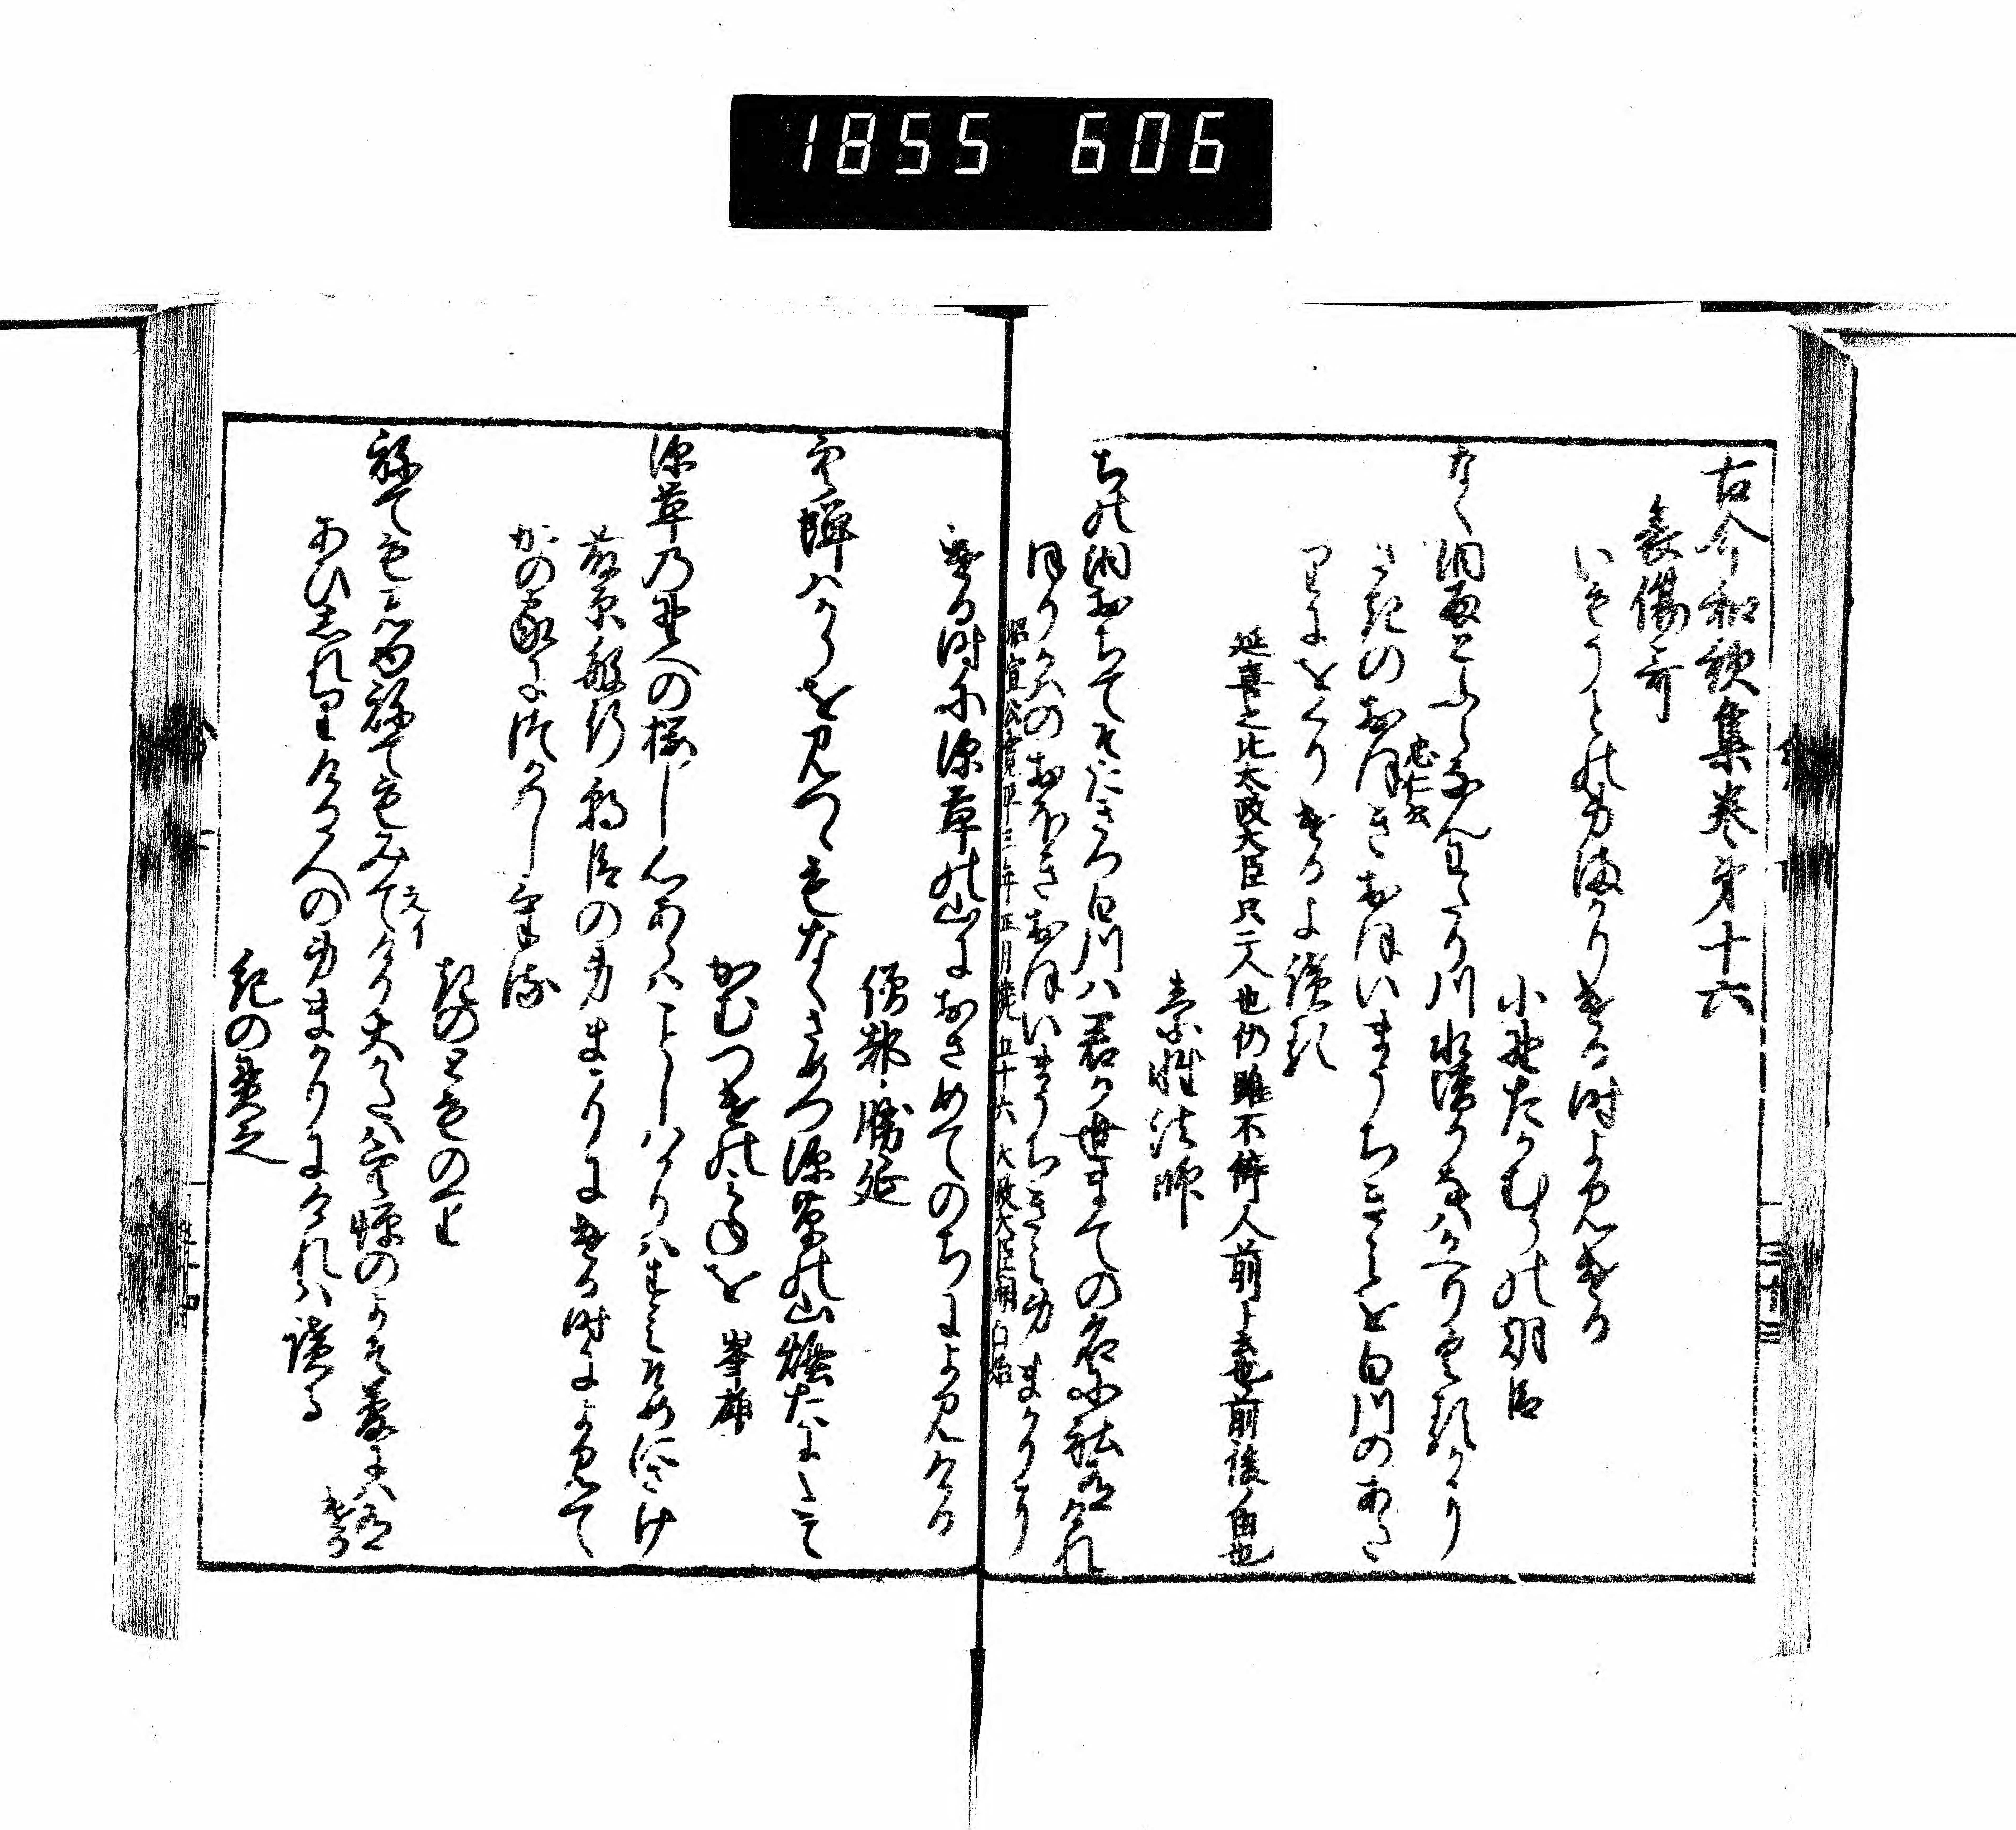 1855 606
古今和歌集巻第十六
哀傷哥
いもうとの身まかりける時よみける
小野たかむらの朝臣
なく泪雨とふらなんわたり川水まさりなはかへりくるかに
さきのおほきおほいまうちきみを白川のあた
りにをくりける夜読る
忠仁公
延喜之比太政大臣只二人也仍雖不併人前ト書前後ノ由也
素性法師
ちの泪おちてそたきつ白川は君か世まての名にこそ有けれ
ほりかはのおほきおほいまうちきみ身まかりに
昭宣公寛平三年正月薨五十六太政大臣関白
ける時に深草の山におさめてのちによみける
僧都勝延
空蝉はからを見つつもなくさめつ深草の山煙たにたて
かむつけのみねを 峯雄
深草の野への桜し心あらはことしはかりはすみそめにさけ
藤原敏行朝臣の身まかりにける時によみて
かの家につかはしける
紀のとものり
ねても見ゆねてもみてけり大かたは空蝉のよそ夢には有ける
えイ
あひしれりける人の身まかりにけれは読る
紀の貫之